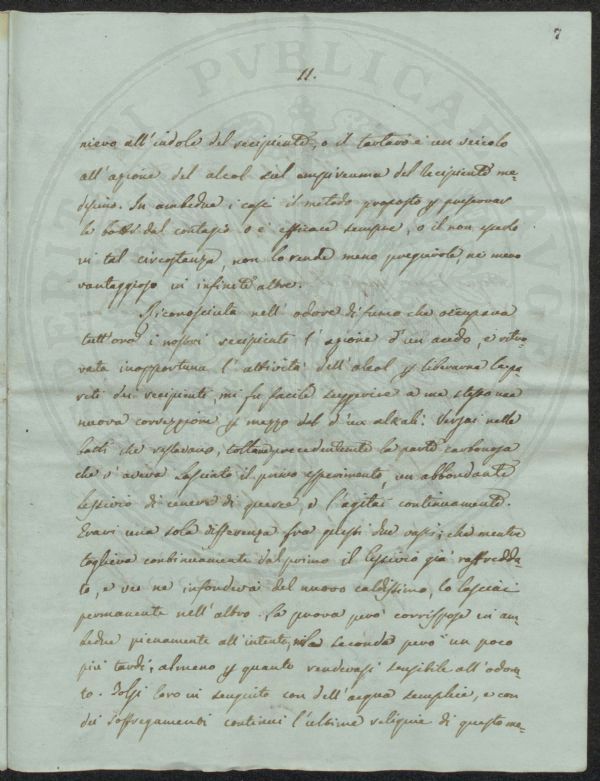 7
11.
nievo all'indole del recipiente, o il tartaro è un veicolo
all'azione del alcol sul empireuma del recipiente me-
desimo. In ambedue i casi il metodo proposto p preservar
le botti dal contagio o è efficace sempre, o il non esserlo
in tal circostanza, non lo rende meno pregievole, nè meno
vantaggioso in infinite altre.
Riconosciuta nell'odore di fumo che occupava
tutt'ora i nostri recipienti l'azione d'un acido, e ritro-
vata inopportuna l'attività dell'alcol p liberarne le pa-
reti dei recipienti, mi fu facile suggerire a me stesso una
nuova correzzione p mezzo d'un alkali. Versai nelle
botti che restavano, toltane precedentemente la parte carbonosa
che v'aveva lasciato il primo esperimento, un abbondante
lessivio di cenere di querce, e l'agitai continuamente.
Eravi una sola differenza fra questi due vasi; che mentre
toglieva continuamente dal primo il lessivio già raffredda-
to, e ve ne infondeva del nuovo caldissimo, lo lasciai
permanente nell'altro. La prova però corrispose in am-
bedue pienamente all'intento, nella seconda però un poco
più tardi; almeno p quanto rendevasi sensibile all'odora-
to. Tolsi loro in seguito con dell'acqua semplice, e con
dei soffregamenti continui l'ultime reliquie di questo me-